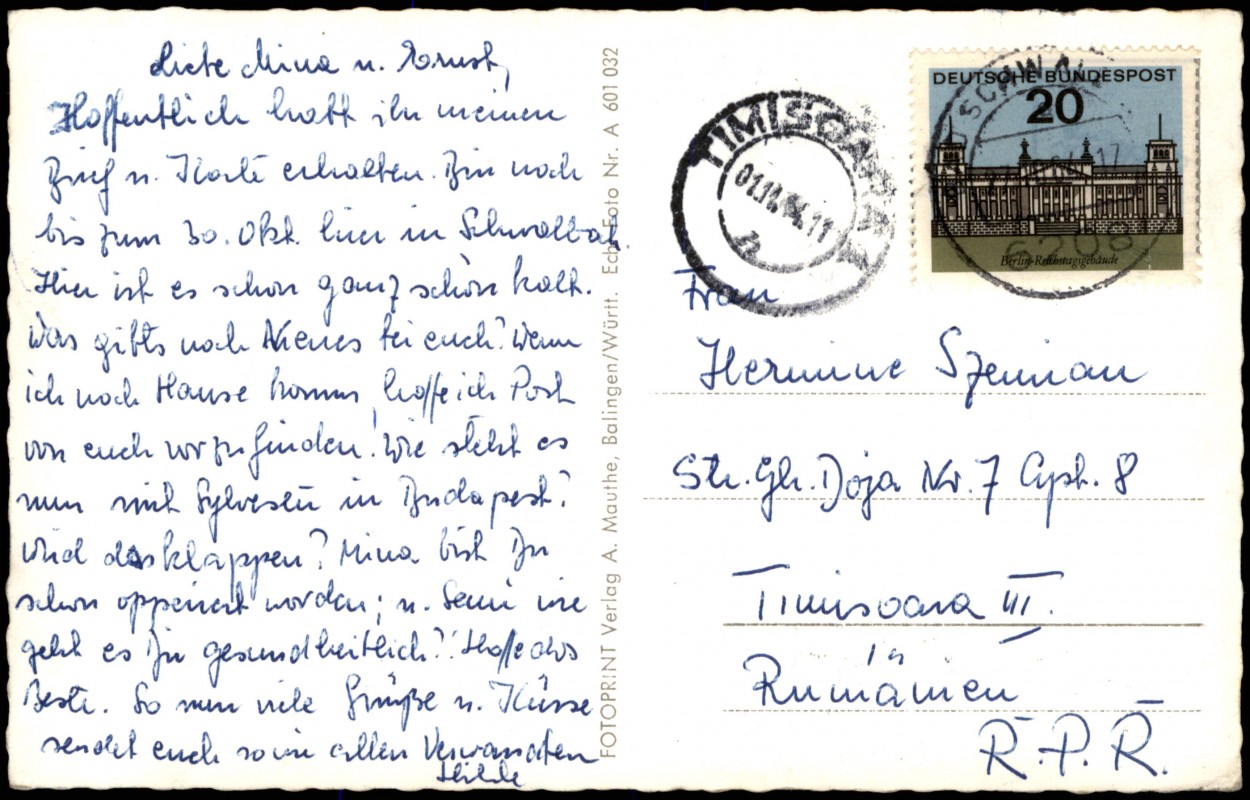 Liebe Mina u. Ernst,
Hoffentlich habt ihr meinen
Brief u. Karte erhalten. Bin noch
bis zum 30. Okt. hier in Schwalbach.
Hier ist es schon ganz schön kalt.
Was gibts noch Neues bei euch? Wenn
ich nach Hause komme, hoffe ich Post
von euch vorzufinden! Wie steht es
nun mit Sylvester in Budapest?
Wird das klappen? Mina bist Du
schon opperiert worden; u. Semi wie
geht es Dir gesundheitlich? Hoffe das
Beste. So nun viele Grüße u. Küsse
sendet euch sowie allen Verwandten
Hilde
FOTOPRINT Verlag A. Mauthe, Balingen/Württ. Echt Foto Nr. A 601 032
TIMISOARA
01.11.64.11
DEUTSCHE BUNDESPOST
20
Berlin · Reichstagsgebäude
6208
Frau
Hermine Szemian
Str. Gh. Doja Nr. 7 Apt. 8
Timisoara III.
in
Rumänien
R.P.R.